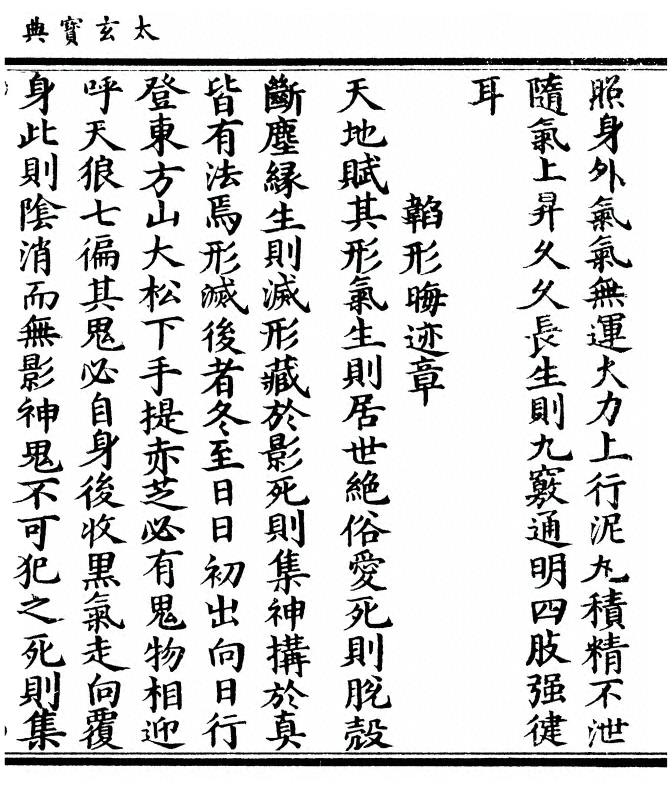 太玄寶典
照身外氣氣無運火力上行泥丸積精不泄
隨氣上昇久久長生則九竅通明四肢强健
耳
韜形晦迹章
天地賦其形氣生則居世絶俗愛死則脫殼
斷塵緣生則滅形藏於影死則集神搆於真
皆有法焉形滅後者冬至日日初出向日行
登東方山大松下手提赤芝必有鬼物相迎
呼天狼七徧其鬼必自身後收黒氣走向覆
身此則陰消而無影神鬼不可犯之死則集